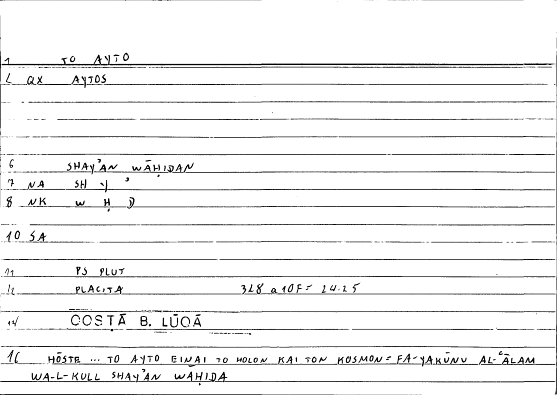 1 TO AYTO
2 QX AYTOS
6 SHAY'AN WĀḤIDAN
7 NA SH Y '
8 NK W Ḥ D
10 SA
11 PS PLUT
12 PLACITA 328 a 10F = 24.25
14 QOSṬĀ B. LŪQĀ
16 HŌSTE ... TO AYTO EINAI TO HOLON KAI TON KOSMON = FA-YAKŪNU AL-ʿĀLAM
WA-L-KULL SHAY'AN WĀḤIDA